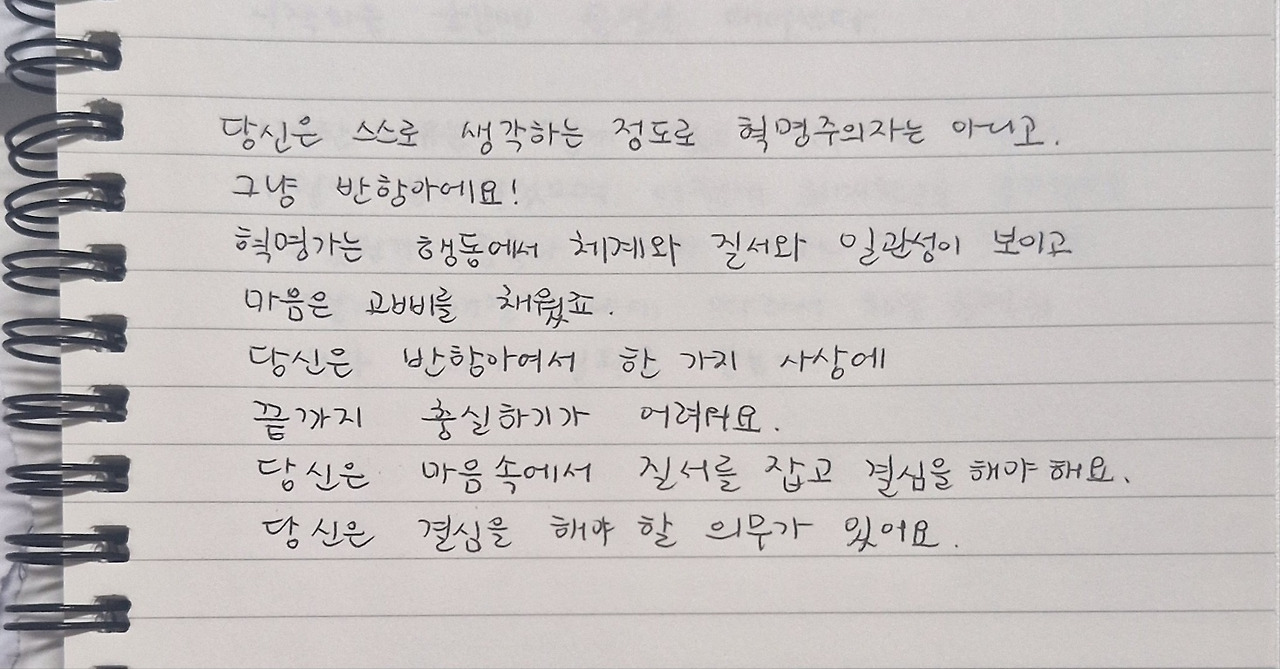 당신은 스스로 생각하는 정도로 혁명주의자는 아니고.
그냥 반항아에요!
혁명가는 행동에서 체계와 질서와 일관성이 보이고
마음은 고삐를 채웠죠.
당신은 반항아여서 한 가지 사상에
끝까지 충실하기가 어려워요.
당신은 마음속에서 질서를 잡고 결심을 해야 해요.
당신은 결심을 해야 할 의무가 있어요.